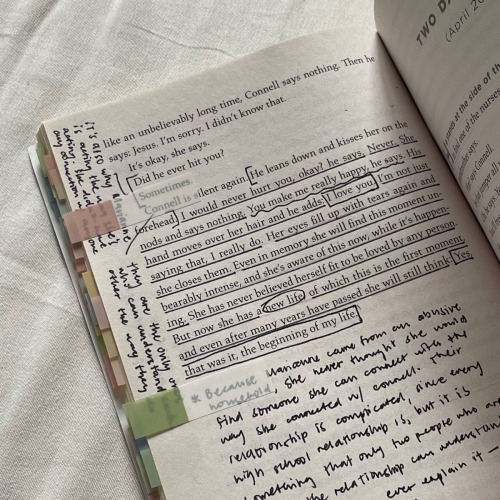 like an unbelievably long time, Connell says nothing. Then he
says: Jesus. I'm sorry. I didn't know that.
It's okay, she says.
Did he ever hit you?
Sometimes.
Connell is silent again. He leans down and kisses her on the
forehead. I would never hurt you, okay? he says. Never. She
nods and says nothing. You make me really happy, he says. His
hand moves over her hair and he adds: I love you. I'm not just
saying that, I really do. Her eyes fill up with tears again and
she closes them. Even in memory she will find this moment un-
bearably intense, and she's aware of this now, while it's happen-
ing. She has never believed herself fit to be loved by any person.
But now she has a new life, of which this is the first moment,
and even after many years have passed she will still think: Yes,
that was it, the beginning of my life.
* Because Marianne came from an abusive
household, she never thought she would
find someone she can connect with the
way she connected w/ connell. Their
relationship is complicated, since every
high school relationship is, but it is
something that only two people who are
the relationship can understand
ever explain it —
it's also why
is acting the
they are the only
can understand
other the way they
TWO
(April 20